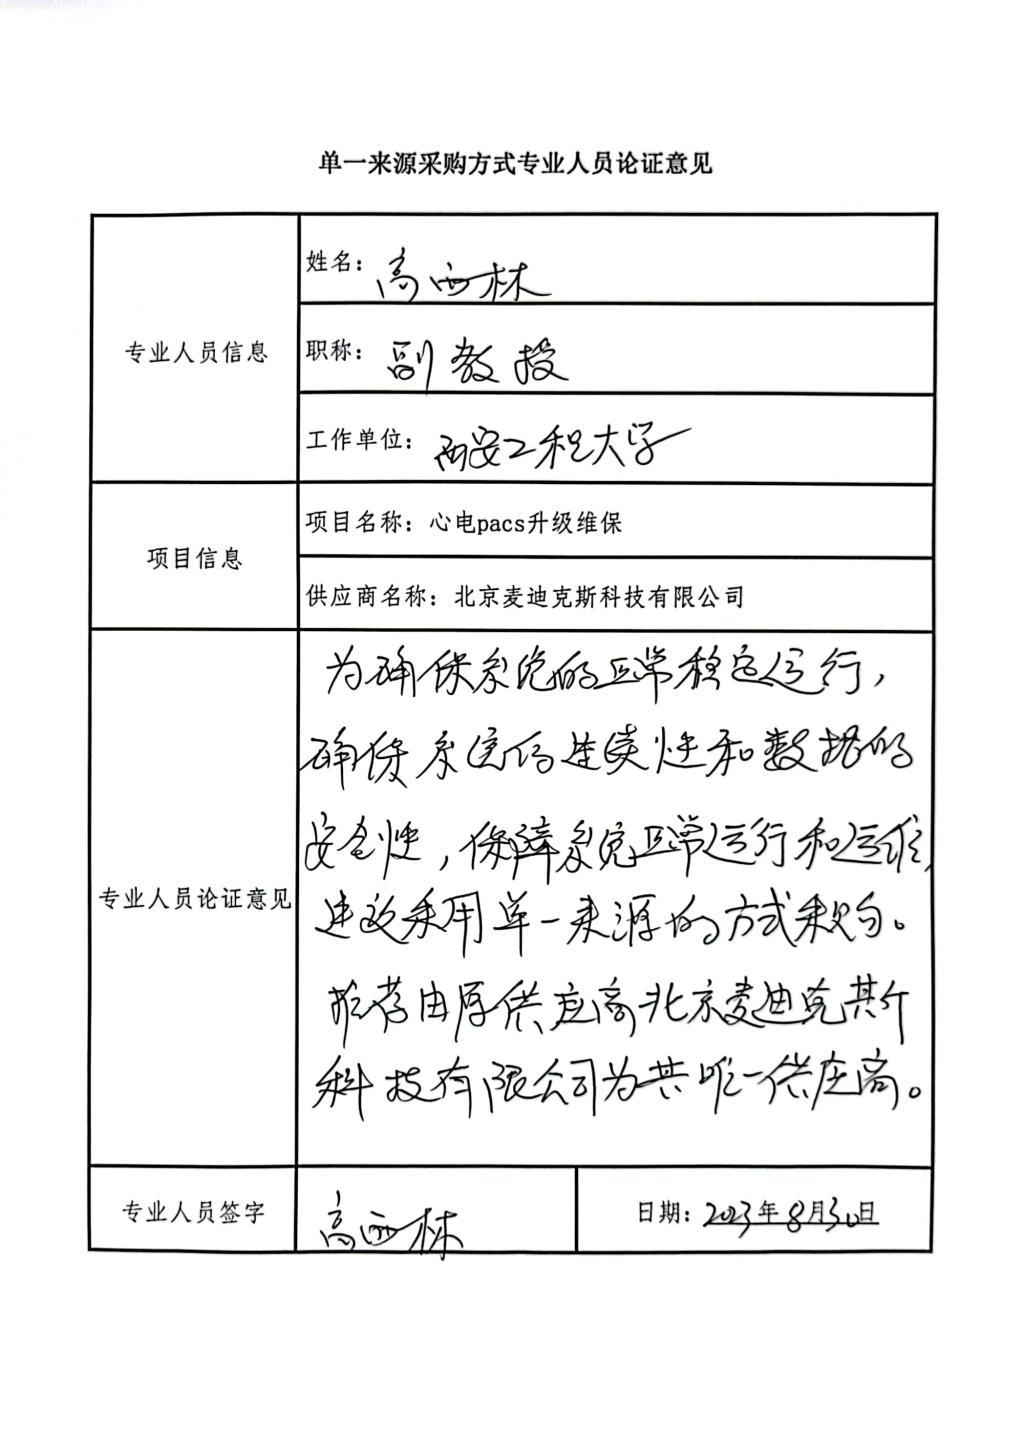 单一来源采购方式专业人员论证意见
专业人员信息
姓名：高西林
职称：副教授
工作单位：西安工程大学
项目信息
项目名称：心电pacs升级维保
供应商名称：北京麦迪克斯科技有限公司
专业人员论证意见
为确保系统的正常稳定运行，
确保系统的连续性和数据的
安全性，保障系统正常运行和运维，
建议采用单一来源的方式采购。
推荐由原供应商北京麦迪克斯
科技有限公司为其唯一供应商。
专业人员签字
高西林
日期：2023年8月30日